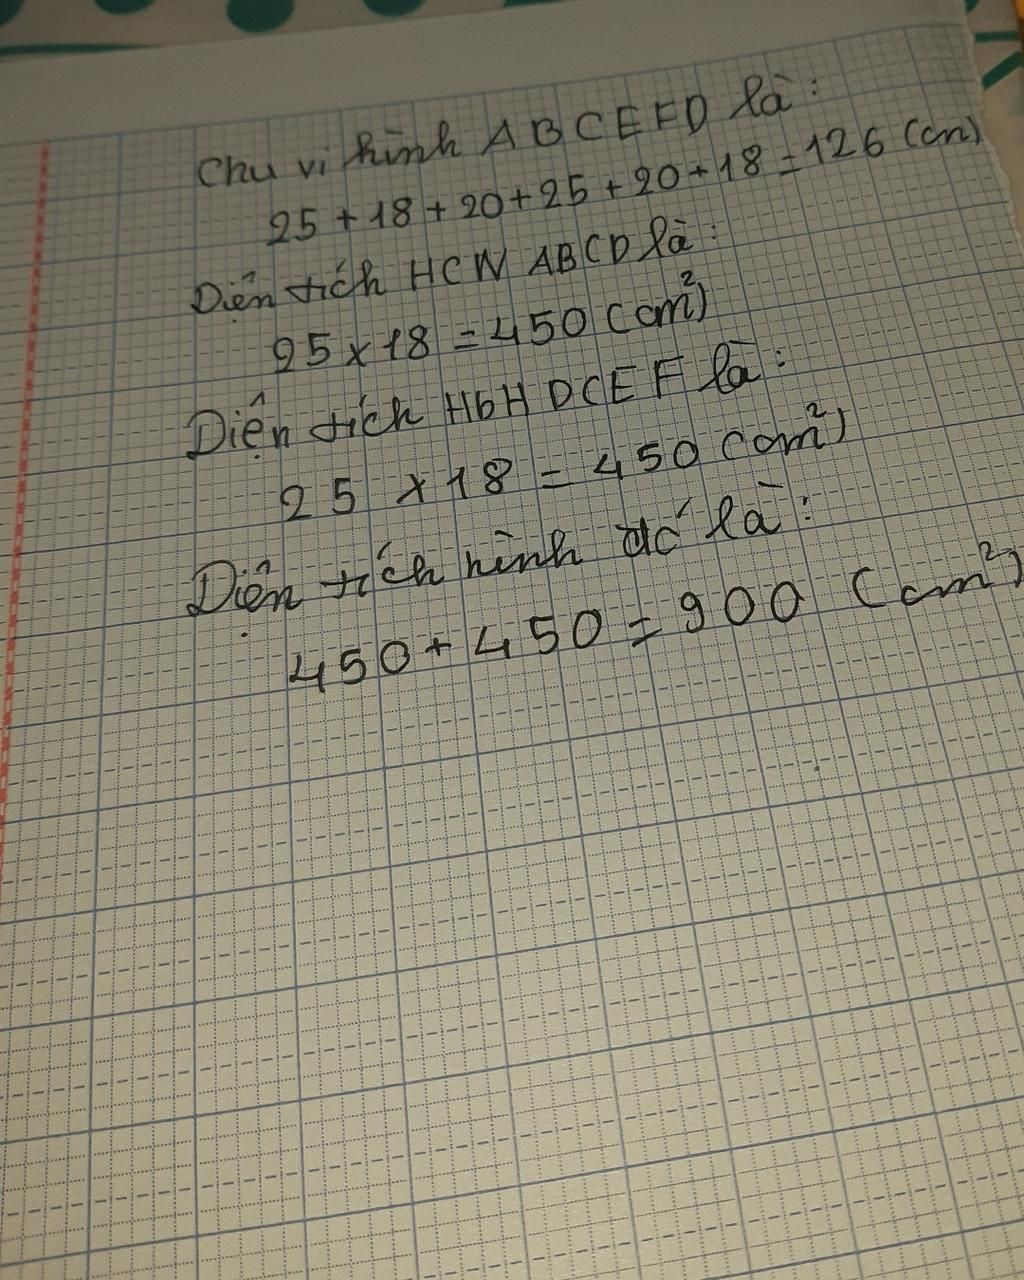 Chu vi hình ABCEFD là:
25 + 18 + 20 + 25 + 20 + 18 = 126 (cm)
Diện tích HCN ABCD là:
25 x 18 = 450 (cm²)
Diện tích HbH DCEF là:
25 x 18 = 450 (cm²)
Diện tích hình đó là:
450 + 450 = 900 (cm²)